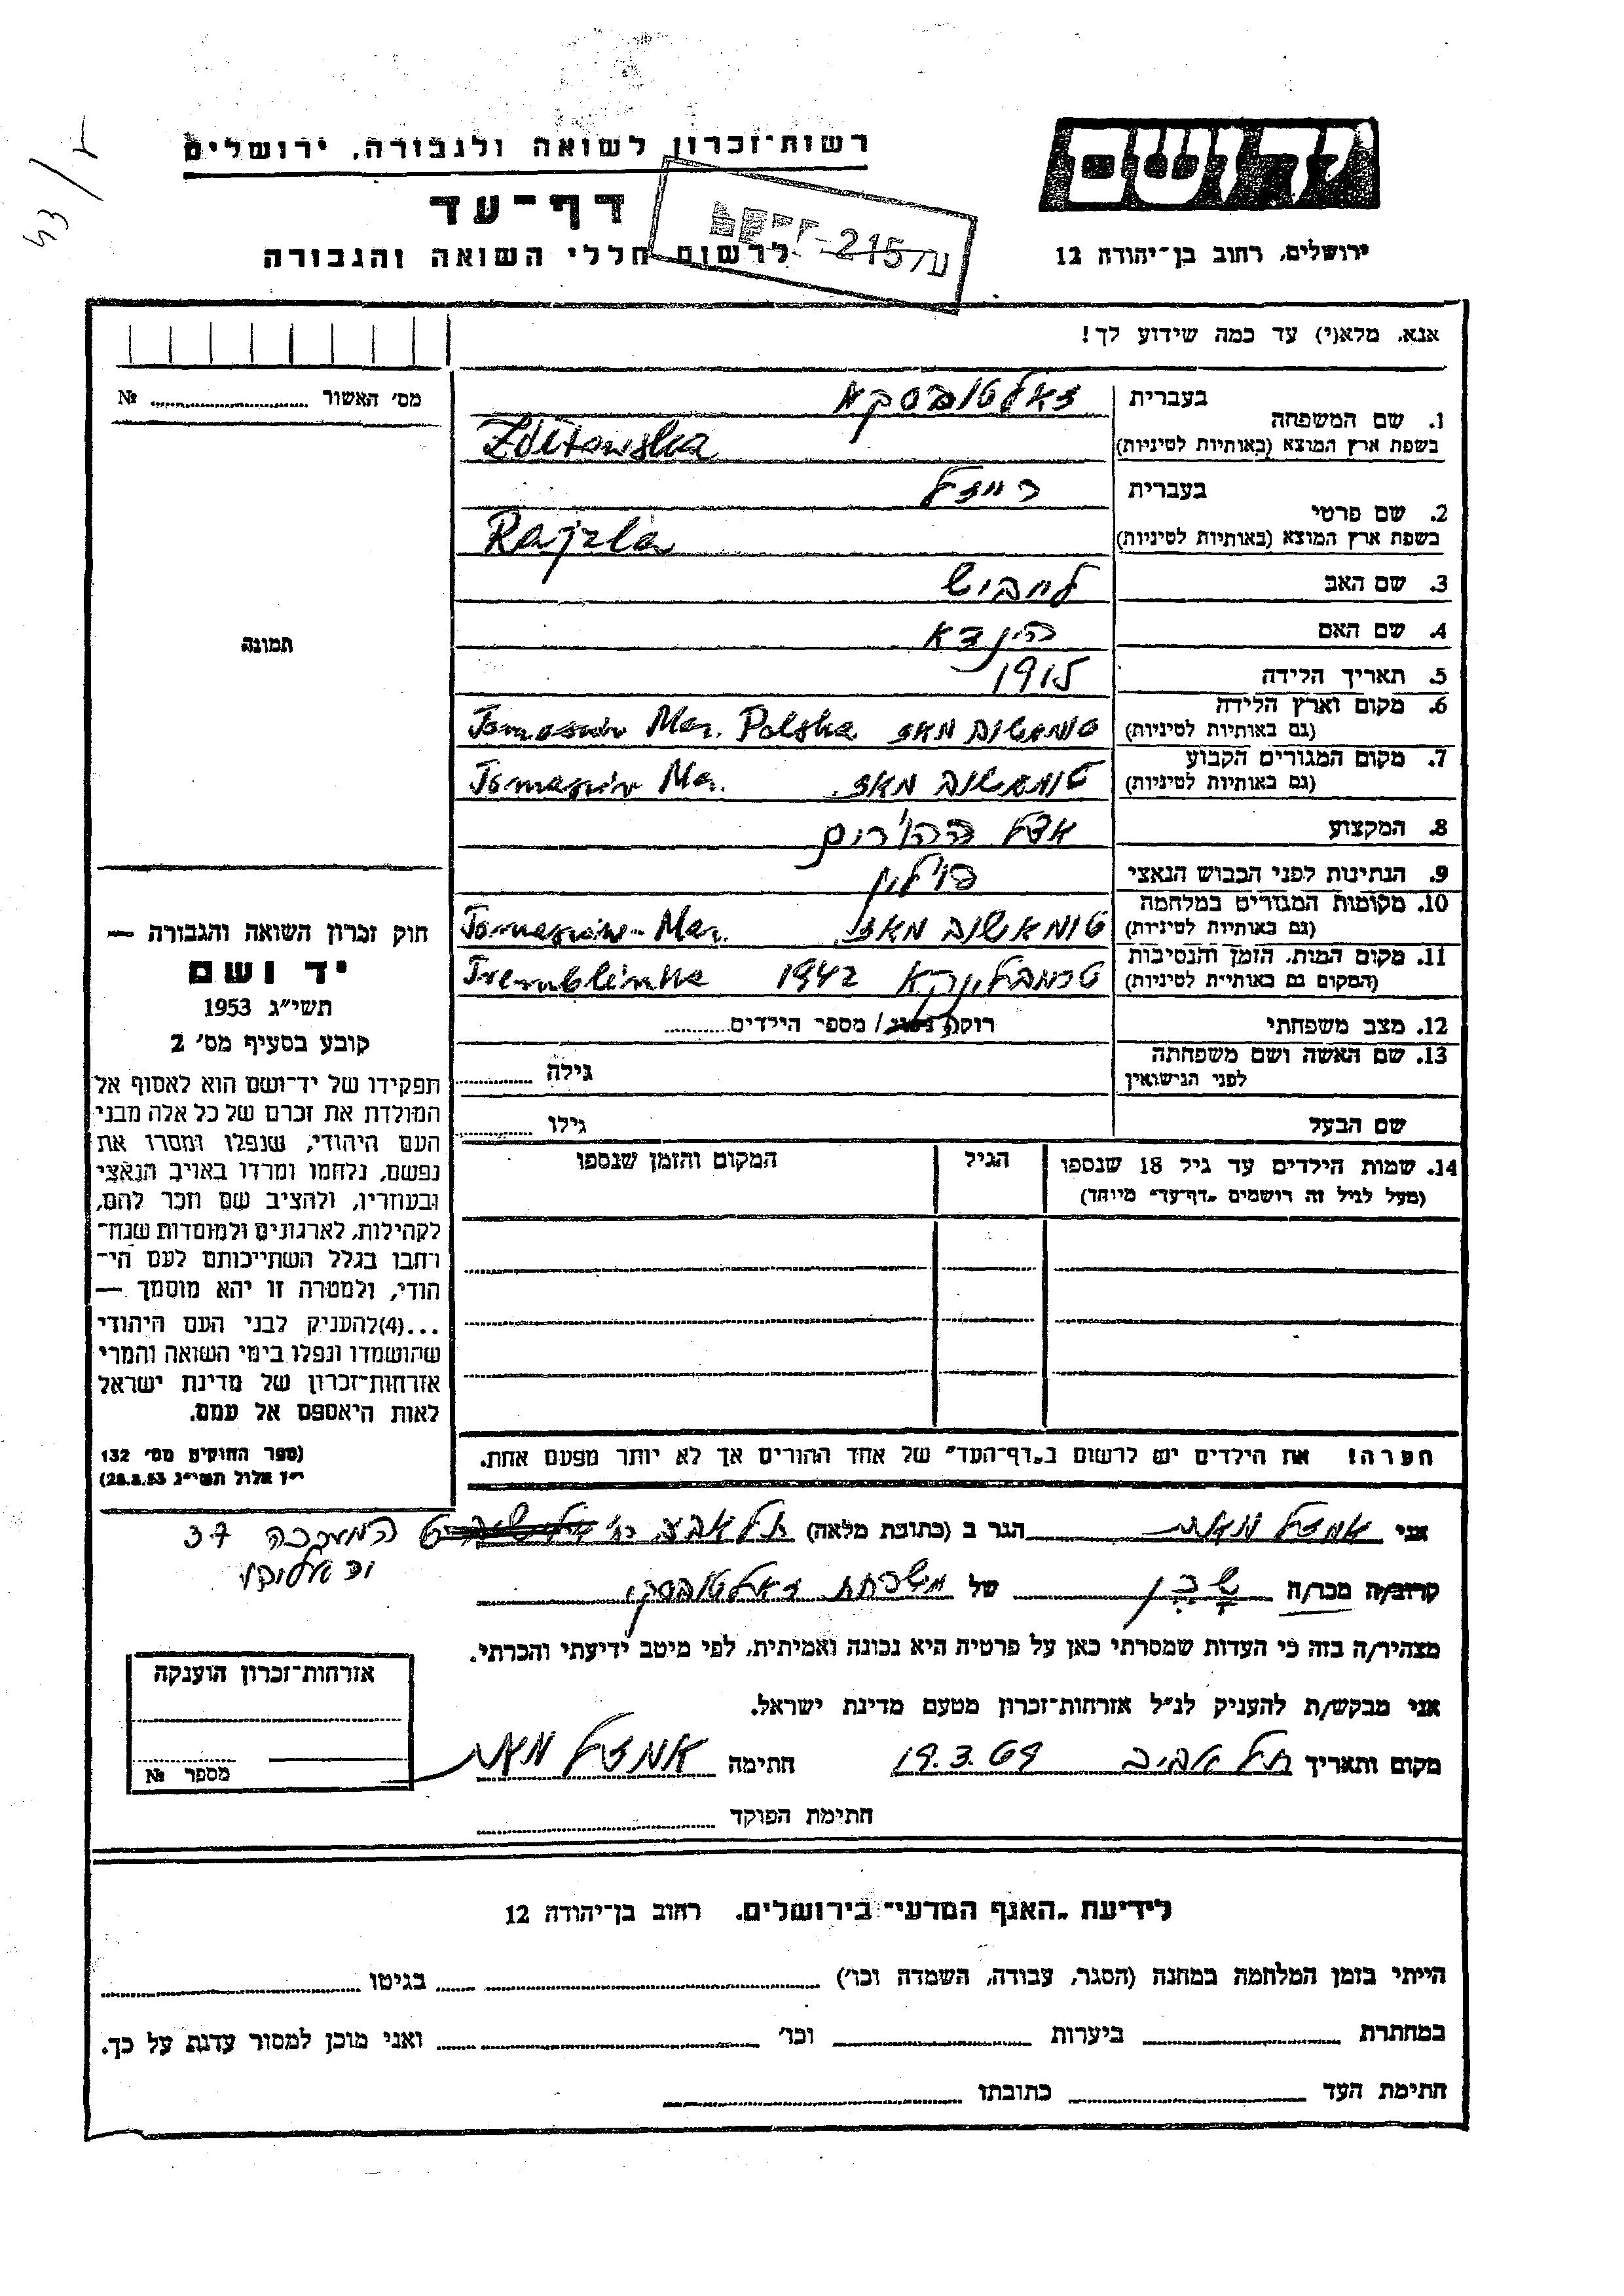 רשות־זכרון לשואה ולגבורה, ירושלים
דף־עד
לרשום חללי השואה והגבורה
ידושם
ירושלים, רחוב בן־יהודה 12
אנא, מלא(י) עד כמה שידוע לך!
מס׳ האשור № 
תמונה
1. שם המשפחה בעברית
בשפת ארץ המוצא (באותיות לטיניות) Zdltowska
2. שם פרטי בעברית רייזל
בשפת ארץ המוצא (באותיות לטיניות) Rajzla
3. שם האב לייביש
4. שם האם הינדא
5. תאריך הלידה 1915
6. מקום וארץ הלידה טומאשוב מאז. Tomasów Maz. Polska
(גם באותיות לטיניות)
7. מקום המגורים הקבוע טומאשוב מאז. Tomaszów Maz.
(גם באותיות לטיניות)
8. המקצוע אצל ההורים
9. הנתינות לפני הכבוש הנאצי פולין
10. מקומות המגורים במלחמה טומאשוב מאז. Tomaszów-Maz.
(גם באותיות לטיניות)
11. מקום המות, הזמן והנסיבות טרמבלינקא 1942 Tremblinka
(המקום גם באותיות לטיניות)
12. מצב משפחתי רוקה נשוי / מספר הילדים
13. שם האשה ושם משפחתה גילה
לפני הנישואין
שם הבעל גילו
14. שמות הילדים עד גיל 18 שנספו הגיל המקום והזמן שנספו
(מעל לגיל זה רושמים „דף־עד״ מיוחד)
חוק זכרון השואה והגבורה —
יד ושם
תשי״ג 1953
קובע בסעיף מס׳ 2
תפקידו של יד־ושם הוא לאסוף אל
המולדת את זכרם של כל אלה מבני
העם היהודי, שנפלו ומסרו את
נפשם, נלחמו ומרדו באויב הנאצי
ובעוזריו, ולהציב שם וזכר להם,
לקהילות, לארגונים ולמוסדות שנח־
רחבו בגלל השתייכותם לעם הי־
הודי, ולמטרה זו יהא מוסמך —
...(4)להעניק לבני העם היהודי
שהושמדו ונפלו בימי השואה והמרי
אזרחות־זכרון של מדינת ישראל
לאות היאספם אל עמם.
(ספר החוקים מס׳ 132
י״ז אלול תשי״ג 28.8.53)
הערה! את הילדים יש לרשום ב„דף־העד״ של אחד ההורים אך לא יותר מפעם אחת.
אני הגר ב (כתובת מלאה) 37
קרוב/ה מכר/ה שכן של משפחת
מצהיר/ה בזה כי העדות שמסרתי כאן על פרטיה היא נכונה ואמיתית, לפי מיטב ידיעתי והכרתי.
אני מבקש/ת להעניק לנ״ל אזרחות־זכרון מטעם מדינת ישראל.
מקום ותאריך תל אביב 19.3.69 חתימה
חתימת הפוקד
אזרחות־זכרון הוענקה
מספר №
לידיעת „האגף המדעי״ בירושלים, רחוב בן־יהודה 12
הייתי בזמן המלחמה במחנה (הסגר, עבודה, השמדה וכו׳) בגיטו
במחתרת ביערות וכו׳ ואני מוכן למסור עדות על כך.
חתימת העד כתובתו